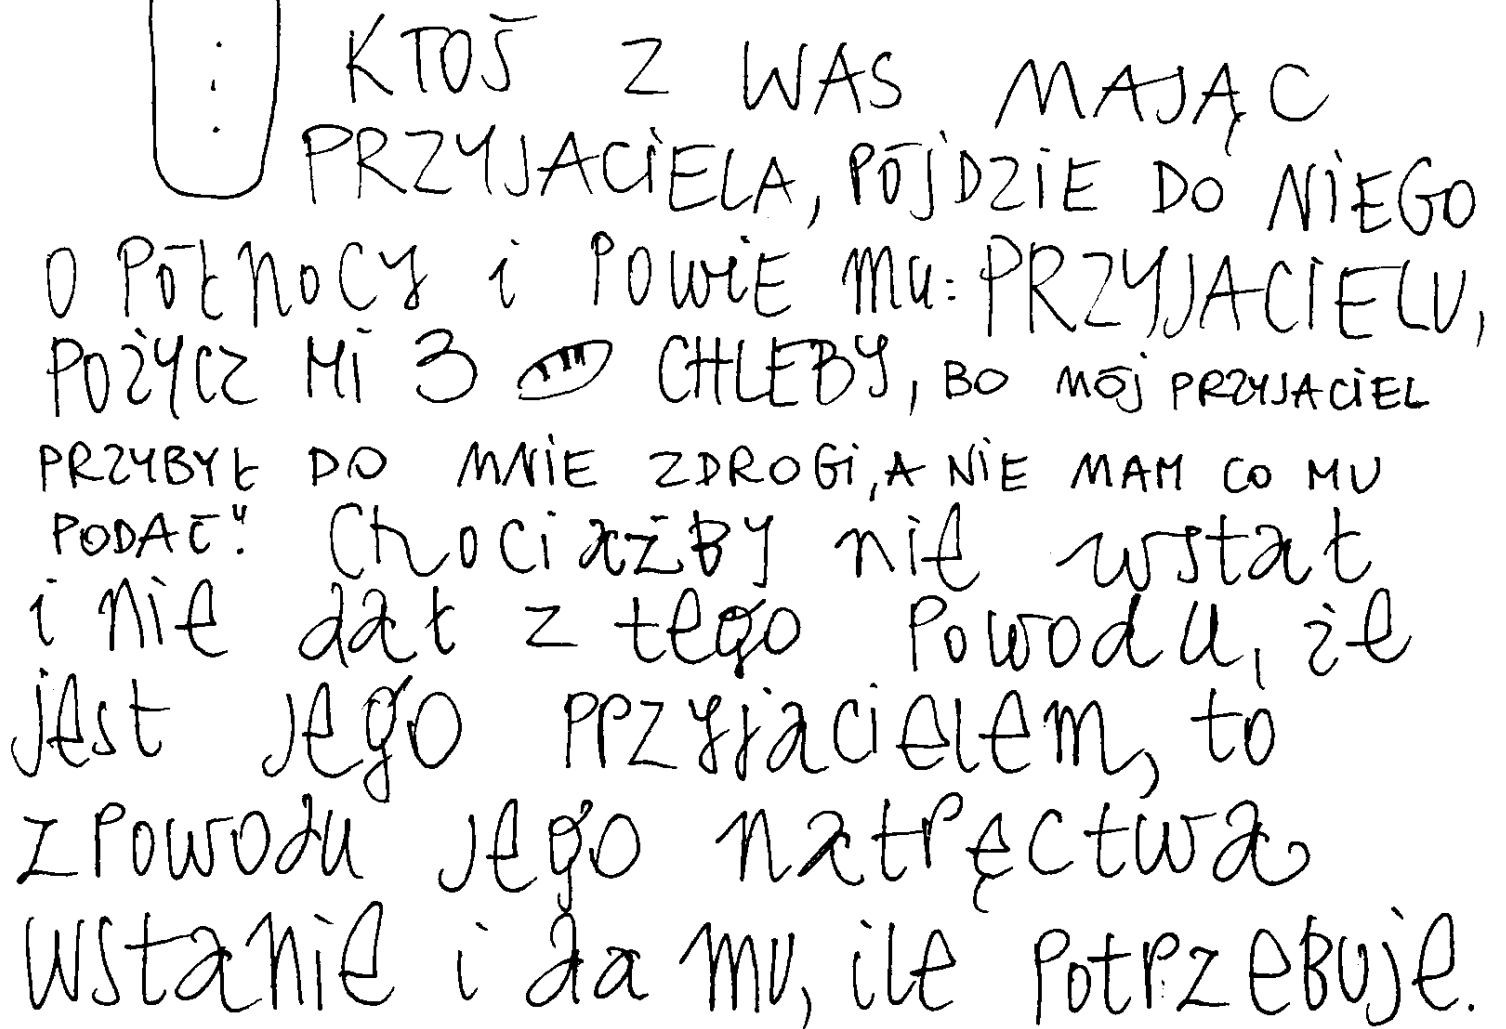 KTOŚ Z WAS MAJĄC
PRZYJACIELA, PÓJDZIE DO NIEGO
O PÓŁNOCY i POWIE MU: PRZYJACIELU,
POŻYCZ MI 3 CHLEBY, BO MÓJ PRZYJACIEL
PRZYBYŁ DO MNIE Z DROGI, A NIE MAM CO MU
PODAĆ". Chociażby nie wstał
i nie dał z tego powodu, że
jest jego przyjacielem, to
z powodu jego natręctwa
wstanie i da mu, ile potrzebuje.